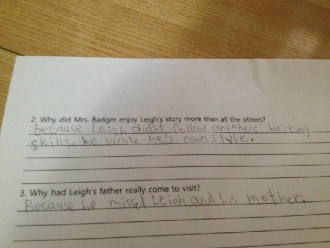 2. Why did Mrs. Badger enjoy Leigh's story more than all the others?
because Leigh didnt follow anyhers writing
skills. he wrote he's own style.
3. Why had Leigh's father really come to visit?
Because he missed Leigh and his mother.